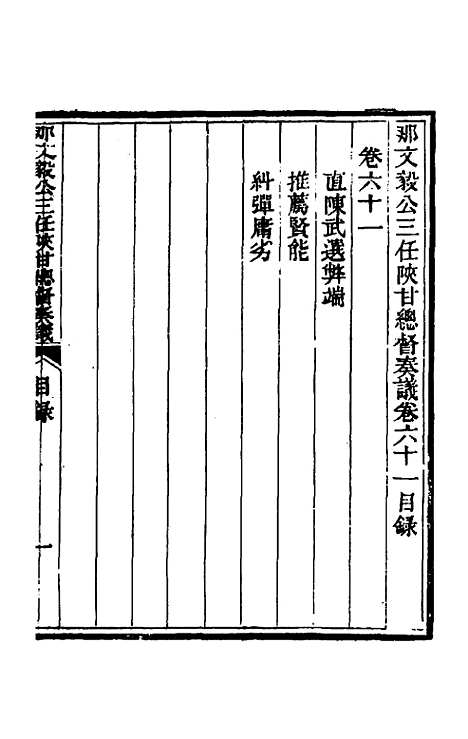 那文毅公三任陜甘總督奏議卷六十一目錄
卷六十一
直陳武選弊端
推薦賢能
糾彈庸劣
那文毅公三任陜甘總督奏議
目錄
一